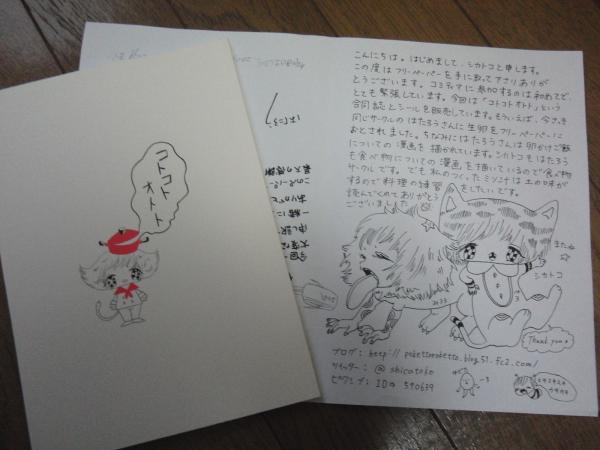 コトコト
オトト
こんにちは。はじめまして、シカトコと申します。
この度はフリーペーパーを手に取って下さりありが
とうございます。コミティアに参加するのは初めてで、
とても緊張しています。今回は「コトコトオトト」という
合同誌とシールを販売しています。そういえば、今さっき
同じサークルのはたろうさんに生卵をフリーペーパーに
おとされました。ちなみにはたろうさんは卵かけご飯
についての漫画を描かれています。シカトコもはたろう
も食べ物についての漫画を描いているので食べ物
サークルです。でも私のつくった は土の味が
するので料理の練習をしたいです。
読んでくれてありがとう
ございました
またね
シカトコ
Thank you
ブログ: http://pokettoroketto.blog.51.fc2.com/
ツイッター: @shicatoko
ピクシブ: ID 590639